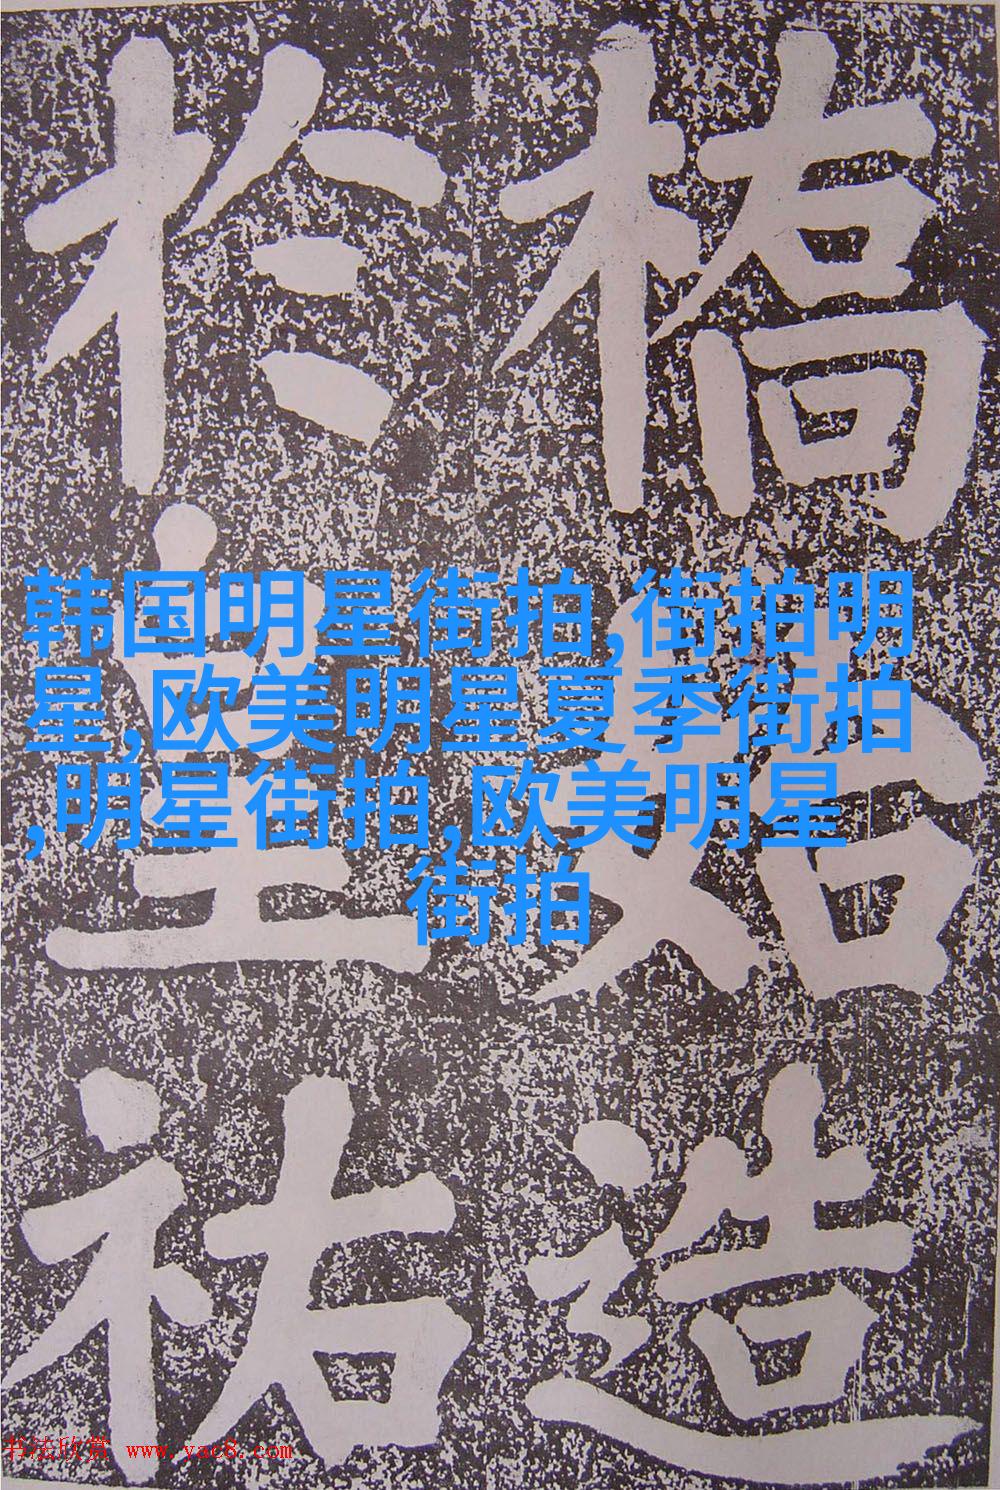 橋始造
於皇祐
韩国明星街拍,街拍明
星,欧美明星夏季街拍
,明星街拍,欧美明星
街拍
书法欣赏 www.yac8.com